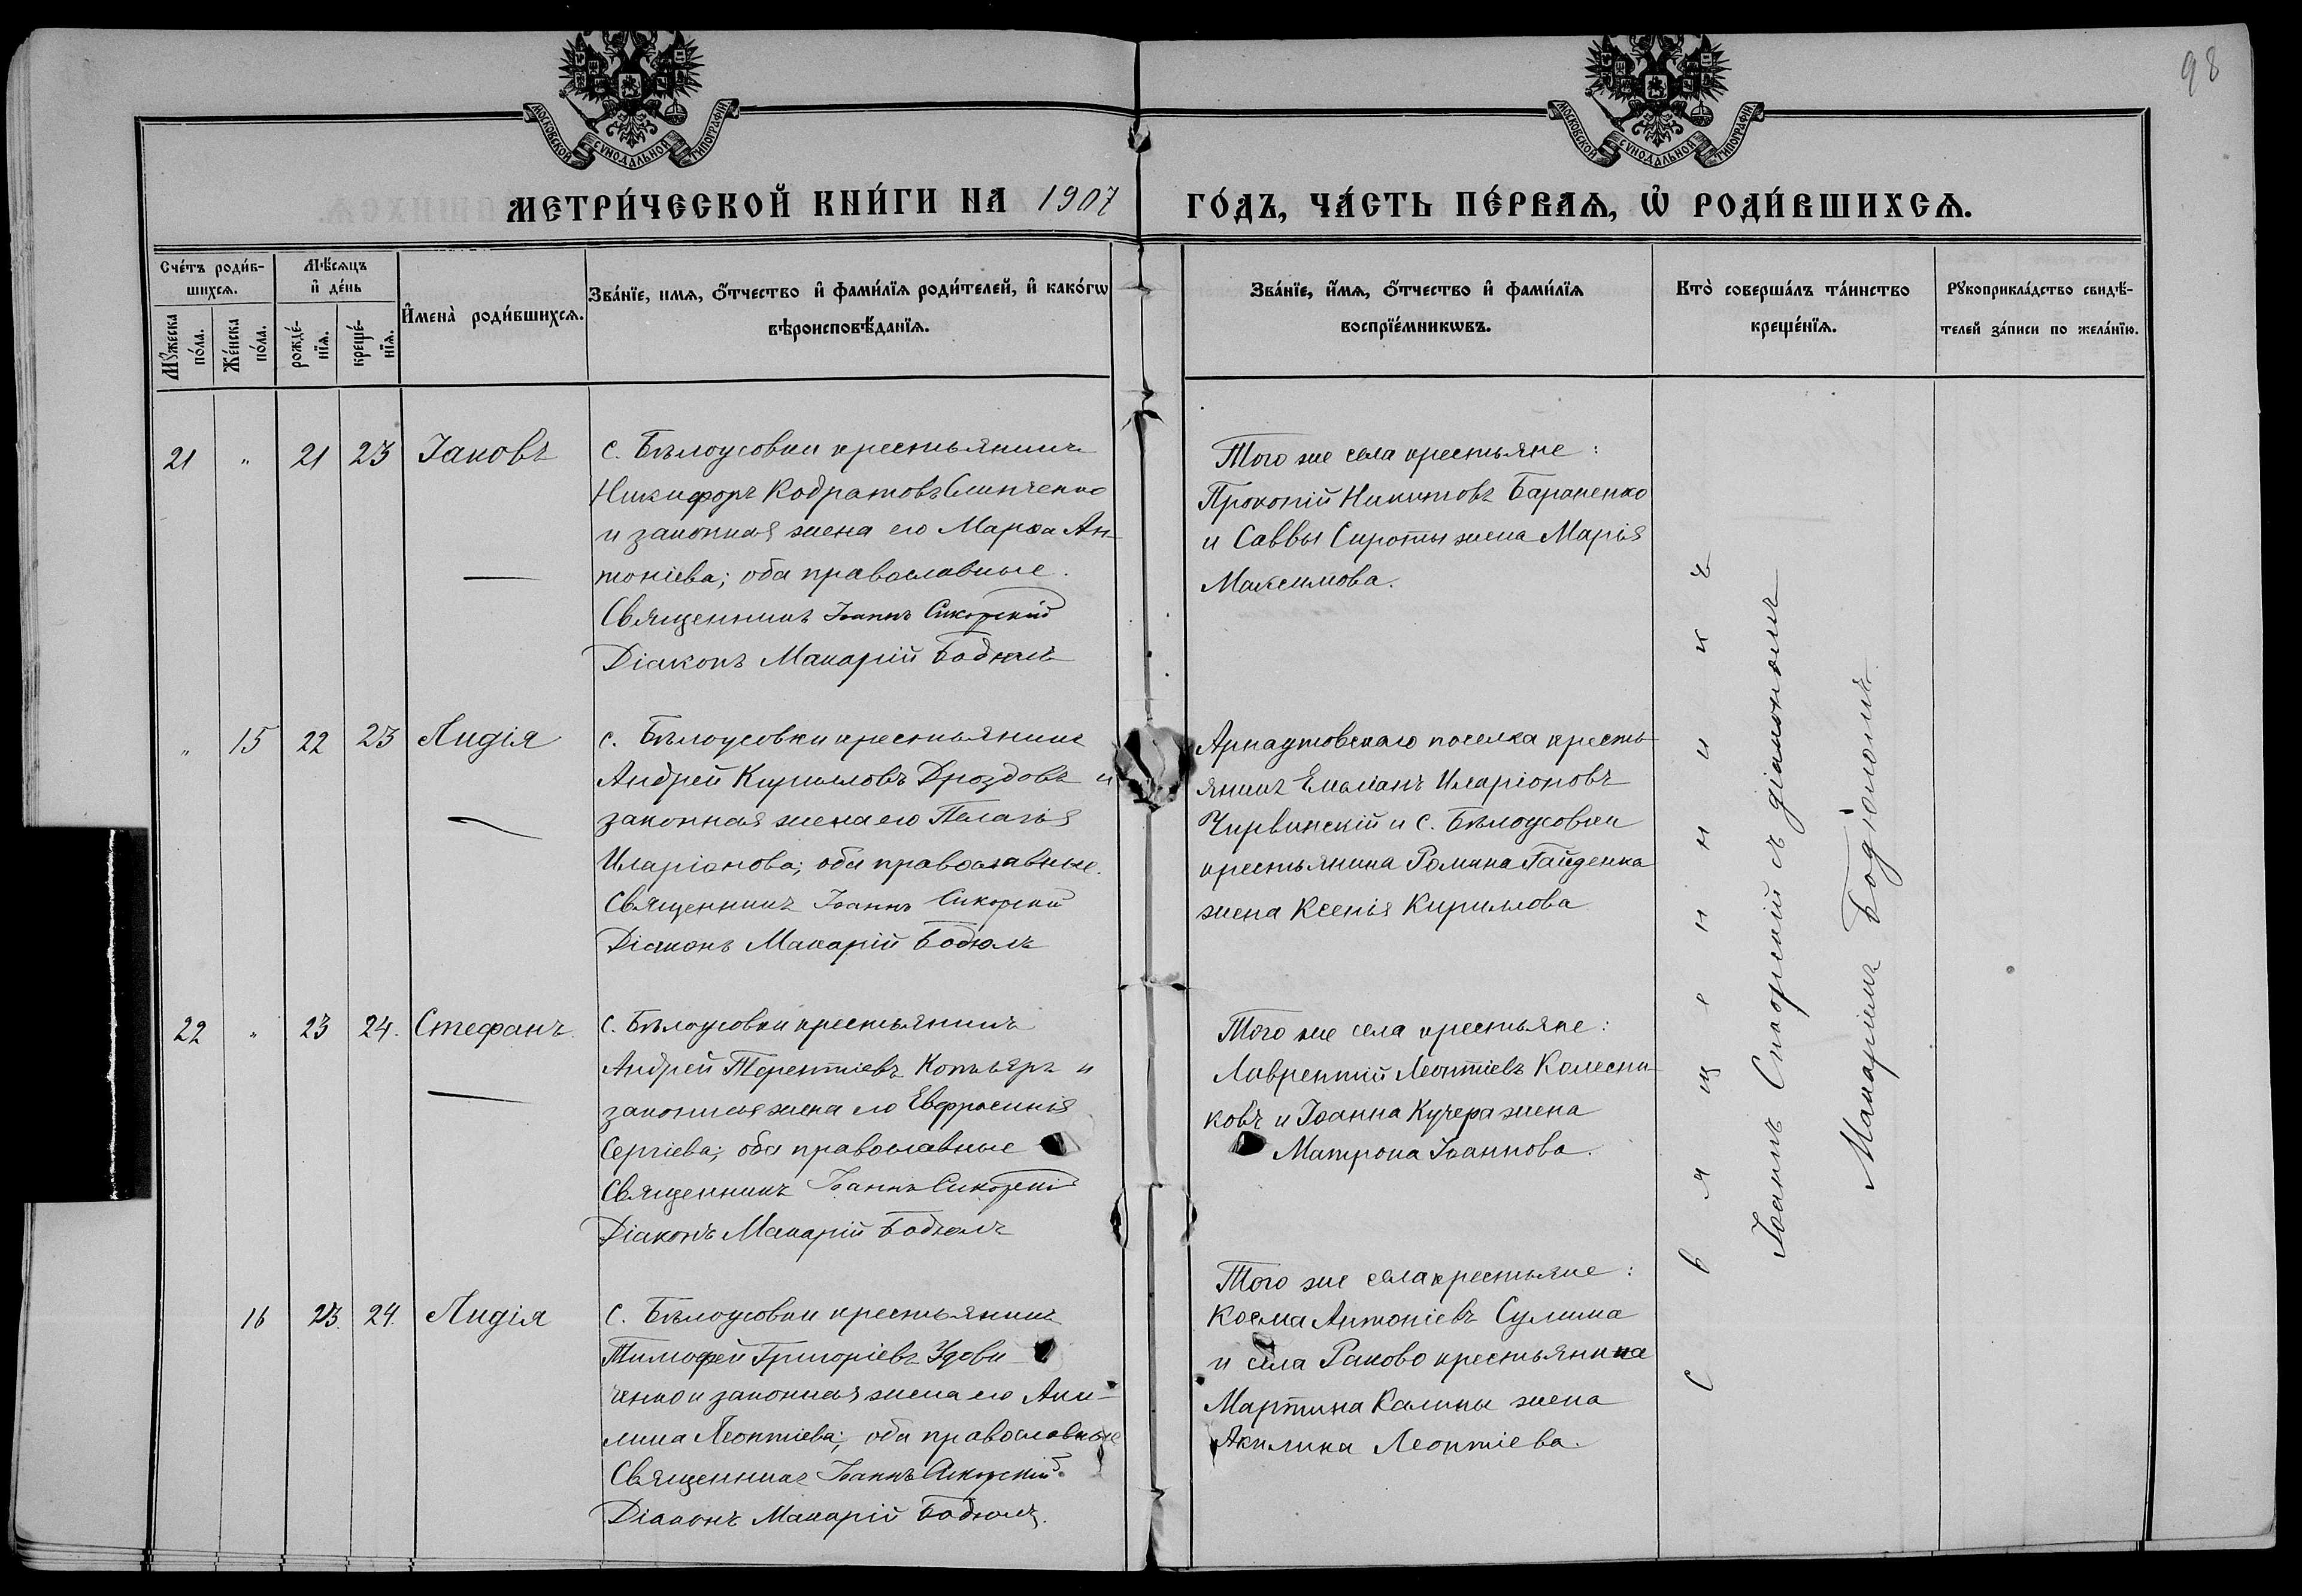 98
МОСКОВСКОЙ СѴНОДАЛЬНОЙ ТИПОГРАФІИ
МОСКОВСКОЙ СѴНОДАЛЬНОЙ ТИПОГРАФІИ
МЕТРИ́ЧЕСКОЙ КНИ́ГИ НА 1907 ГО́ДЪ, ЧА́СТЬ ПЕ́РВАѦ, Ѡ҆ РОДИ́ВШИХСѦ.
Сче́тъ роди́в-
шихсѧ.
Мꙋ́жеска по́ла.
Же́нска по́ла.
Мѣ́сѧцъ
и҆ де́нь
рожде́-
нїѧ.
креще́-
нїѧ.
И҆мена̀ роди́вшихсѧ.
Зва́нїе, имѧ, ѻ҆́тчество и҆ фами́лїѧ роди́телей, и҆ како́гѡ
вѣроисповѣ́данїѧ.
Зва́нїе, и҆́мѧ, ѻ҆́тчество и҆ фами́лїѧ
воспрїе́мникѡвъ.
Кто̀ соверша́лъ та́инство
креще́нїѧ.
Рꙋкоприкла́дство свидѣ́-
телей за́писи по жела́нїю.
21 " 21 23 Іаковъ
с. Бѣлоусовки крестьянинъ
Никифоръ Кодратовъ Слипченко
и законная жена его Марѳа Ан-
тоніева; оба православные.
Священникъ Іоаннъ Сикорскій
Діаконъ Макарій Бодюлъ
Того же села крестьяне:
Прокопій Никитовъ Бараненко
и Саввы Сироты жена Марія
Максимова.
" 15 22 23 Лидія
с. Бѣлоусовки крестьянинъ
Андрей Кирилловъ Дроздовъ и
законная жена его Пелагія
Иларіонова; оба православные.
Священникъ Іоаннъ Сикорскій
Діаконъ Макарій Бодюлъ
Арнаутовскаго поселка кресть-
янинъ Емиліанъ Иларіоновъ
Чирвинскій и с. Бѣлоусовки
крестьянина Романа Гайденка
жена Ксенія Кириллова
22 " 23 24. Стефанъ.
с. Бѣлоусовки крестьянинъ
Андрей Терентіевъ и
законная жена его Евфросинія
Сергіева; оба православные
Священникъ Іоаннъ Сикорскій
Діаконъ Макарій Бодюлъ
Того же села крестьяне:
Лаврентій Леонтіевъ Колесни-
ковъ и Іоанна Кучера жена
Матрона Іоаннова.
16 23. 24. Лидія
с. Бѣлоусовки крестьянинъ
Тимофей Григоріевъ Удови-
ченко и законная жена его Аки-
лина Леонтіева; оба православные
Священникъ Іоаннъ Сикорскій.
Діаконъ Макарій Бодюлъ.
Того же села крестьяне:
Косма Антоніевъ Сулима
и села Раково крестьянина
Мартина Калины жена
Акилина Леонтіева.
Священникъ
Іоаннъ Сикорскій съ діакономъ
Макаріемъ Бодюломъ